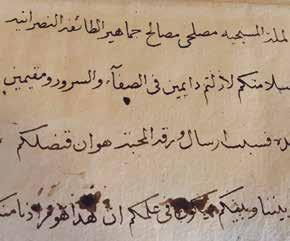 الملة المسيحيه مصلحى مصالح جماهير الطائفة النصرانيه
بسلامتكم لازلتم دايمين فى الصفآء والسرور ومقيمين
فسبب ارسال ورقة المحبة هو ان قنصلكم
بيننا وبينكم فى علمكم ان هذا هو مرادنا منكم